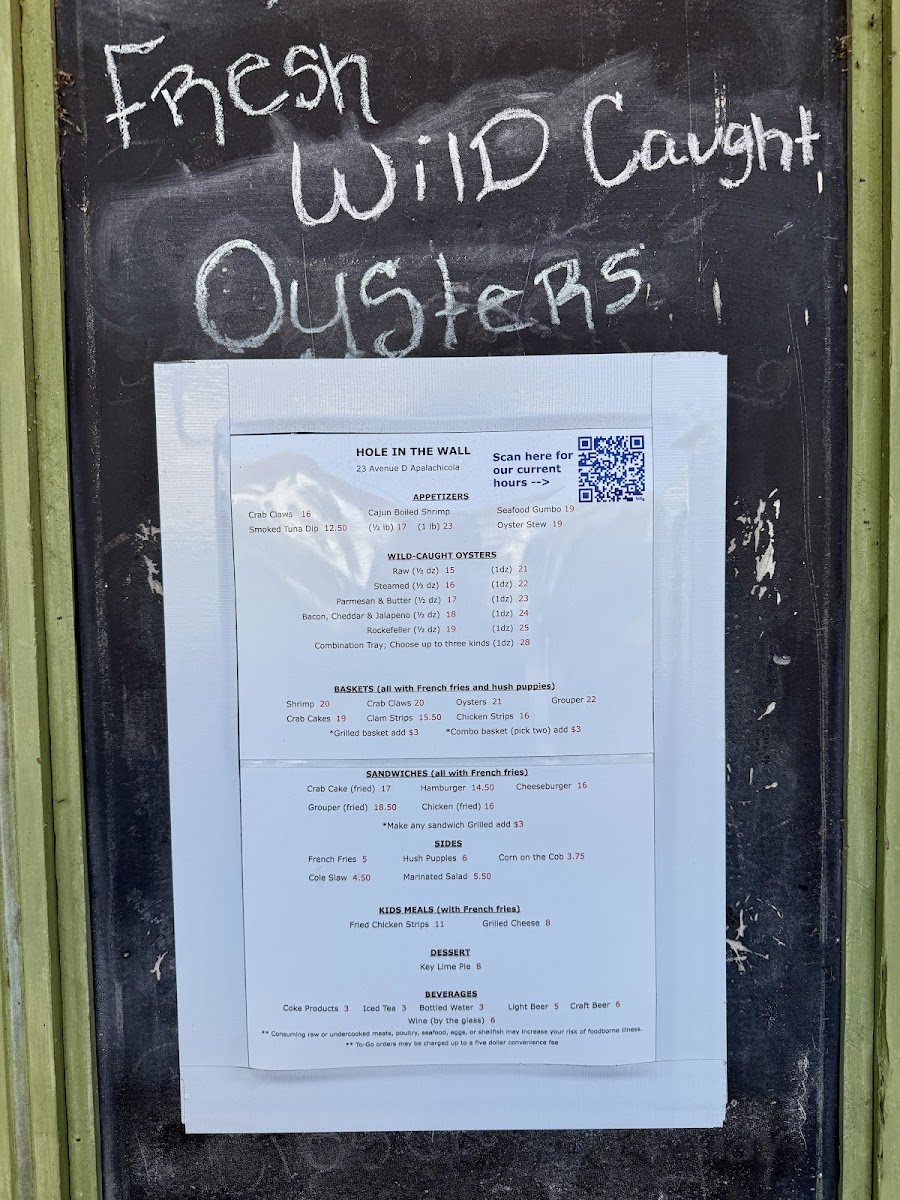 Fresh
Wild Caught
Oysters
HOLE IN THE WALL
23 Avenue D Apalachicola
Scan here for
our current
hours -->
APPETIZERS
Crab Claws 16 Cajun Boiled Shrimp Seafood Gumbo 19
Smoked Tuna Dip 12.50 (½ lb) 17 (1 lb) 23 Oyster Stew 19
WILD-CAUGHT OYSTERS
Raw (½ dz) 15 (1dz) 21
Steamed (½ dz) 16 (1dz) 22
Parmesan & Butter (½ dz) 17 (1dz) 23
Bacon, Cheddar & Jalapeno (½ dz) 18 (1dz) 24
Rockefeller (½ dz) 19 (1dz) 25
Combination Tray; Choose up to three kinds (1dz) 28
BASKETS (all with French fries and hush puppies)
Shrimp 20 Crab Claws 20 Oysters 21 Grouper 22
Crab Cakes 19 Clam Strips 15.50 Chicken Strips 16
*Grilled basket add $3 *Combo basket (pick two) add $3
SANDWICHES (all with French fries)
Crab Cake (fried) 17 Hamburger 14.50 Cheeseburger 16
Grouper (fried) 18.50 Chicken (fried) 16
*Make any sandwich Grilled add $3
SIDES
French Fries 5 Hush Puppies 6 Corn on the Cob 3.75
Cole Slaw 4.50 Marinated Salad 5.50
KIDS MEALS (with French fries)
Fried Chicken Strips 11 Grilled Cheese 8
DESSERT
Key Lime Pie 8
BEVERAGES
Coke Products 3 Iced Tea 3 Bottled Water 3 Light Beer 5 Craft Beer 6
Wine (by the glass) 6
** Consuming raw or undercooked meats, poultry, seafood, eggs, or shellfish may increase your risk of foodborne illness.
** To-Go orders may be charged up to a five dollar convenience fee